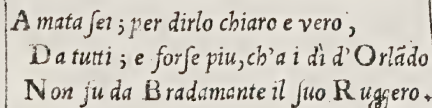 A mata ſei; per dirlo chiaro e vero,
D a tutti; e forſe piu, ch'a i dì d'Orlãdo
N on fu da Bradamante il ſuo Ruggero.